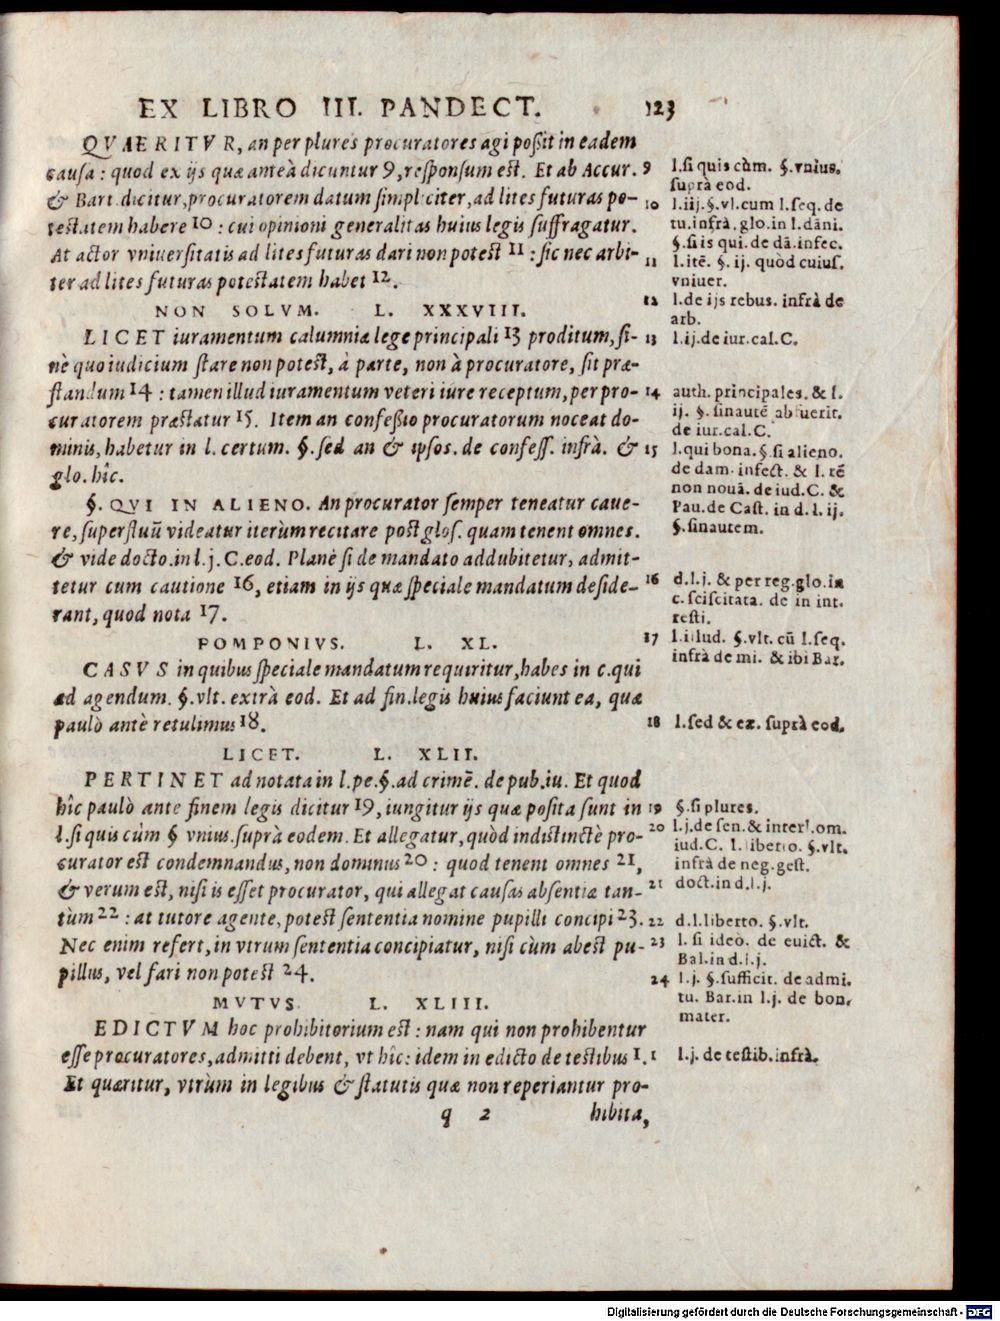 EX LIBRO III. PANDECT. 123
QVAERITVR, an per plures procuratores agi poßit in eadem
causa: quod ex ijs quæ anteà dicuntur 9, responsum est. Et ab Accur.
& Bart. dicitur, procuratorem datum simpliciter, ad lites futuras po-
testatem habere 10: cui opinioni generalitas huius legis suffragatur.
At actor vniuersitatis ad lites futuras dari non potest 11: sic nec arbi-
ter ad lites futuras potestatem habet 12.
NON SOLVM. L. XXXVIII.
LICET iuramentum calumniæ lege principali 13 proditum, si-
nè quo iudicium stare non potest, à parte, non à procuratore, sit præ-
standum 14: tamen illud iuramentum veteri iure receptum, per pro-
curatorem præstatur 15. Item an confeßio procuratorum noceat do-
minis, habetur in l. certum. §. sed an & ipsos. de confess. infrà. &
glo. hîc.
§. QVI IN ALIENO. An procurator semper teneatur caue-
re, superfluū videatur iterùm recitare post glos. quam tenent omnes.
& vide docto. in l. j. C. eod. Planè si de mandato addubitetur, admit-
tetur cum cautione 16, etiam in ijs quæ speciale mandatum deside-
rant, quod nota 17.
POMPONIVS. L. XL.
CASVS in quibus speciale mandatum requiritur, habes in c. qui
ad agendum. §. vlt. extrà eod. Et ad fin. legis huius faciunt ea, quæ
paulò antè retulimus 18.
LICET. L. XLII.
PERTINET ad notata in l. pe. §. ad crimē. de pub. iu. Et quod
hîc paulò ante finem legis dicitur 19, iungitur ijs quæ posita sunt in
l. si quis cùm § vnius. suprà eodem. Et allegatur, quòd indistinctè pro-
curator est condemnandus, non dominus 20: quod tenent omnes 21,
& verum est, nisi is esset procurator, qui allegat causas absentiæ tan-
tùm 22: at tutore agente, potest sententia nomine pupilli concipi 23.
Nec enim refert, in vtrum sententia concipiatur, nisi cùm abest pu-
pillus, vel fari non potest 24.
MVTVS. L. XLIII.
EDICTVM hoc prohibitorium est: nam qui non prohibentur
esse procuratores, admitti debent, vt hîc: idem in edicto de testibus 1.
Et quæritur, vtrùm in legibus & statutis quæ non reperiantur pro-
q 2 hibita,
9 l. si quis cùm. §. vnius.
suprà eod.
10 l. iij. §. vl. cum l. seq. de
tu. infrà. glo. in l. dāni.
§. si is qui. de dā. infec.
11 l. itē. §. ij. quòd cuius.
vniuer.
12 l. de ijs rebus. infrà de
arb.
13 l. ij. de iur. cal. C.
14 auth. principales. & l.
ij. §. sinautē abfuerit.
de iur. cal. C.
15 l. qui bona. §. si alieno.
de dam. infect. & l. rē
non nouā. de iud. C. &
Pau. de Cast. in d. l. ij.
§. sinautem.
16 d. l. j. & per reg. glo. in
c. sciscitata. de in int.
resti.
17 l. illud. §. vlt. cū l. seq.
infrà de mi. & ibi Bar.
18 l. sed & ex. suprà eod.
19 §. si plures.
20 l. j. de sen. & interl. om.
iud. C. l. liberto. §. vlt.
infrà de neg. gest.
21 doct. in d. l. j.
22 d. l. liberto. §. vlt.
23 l. si ideò. de euict. &
Bal. in d. l. j.
24 l. j. §. sufficit. de admi.
tu. Bar. in l. j. de bon.
mater.
1 l. j. de testib. infrà.
Digitalisierung gefördert durch die Deutsche Forschungsgemeinschaft - DFG